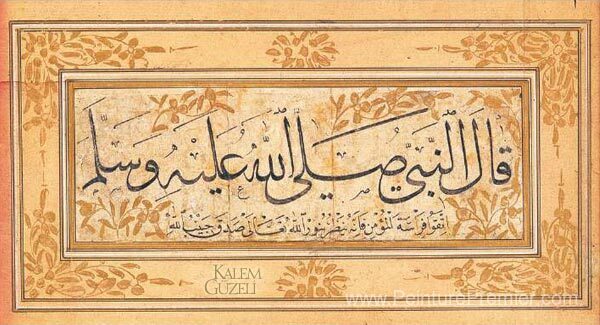 قَالَ النَّبِيُّ صَلَّى اللّٰهُ عَلَيْهِ وَسَلَّمَ
اتقوا فراسة المؤمن فانه ينظر بنور الله تعالى صدق حبيب الله
KALEM
GÜZELİ
www.PeinturePremier.com